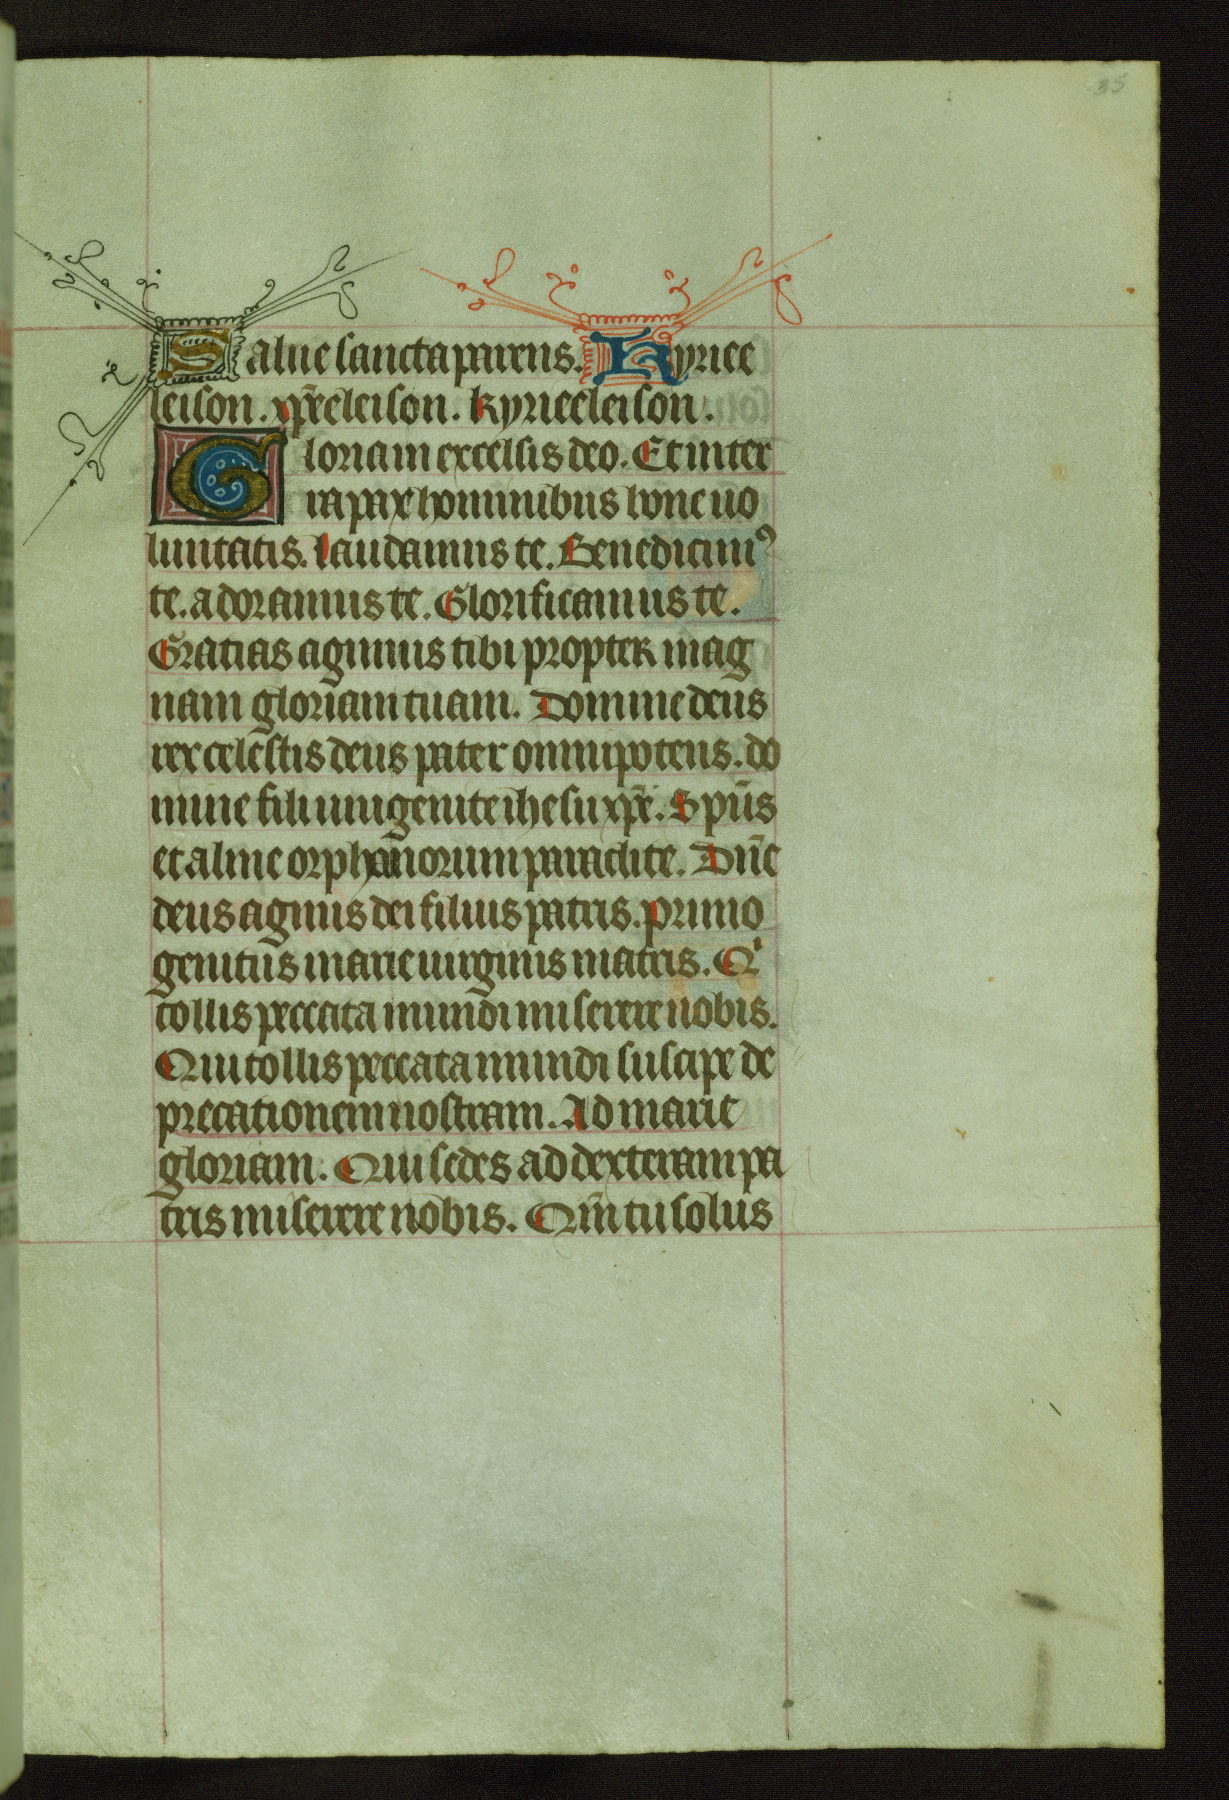 35
Salue sancta parens. Kyriee
leison. xp̄eeleison. kyrieeleison.
Gloria in excelsis deo. Et in ter
ra pax hominibus bone uo
luntatis. laudamus te. Benedicimꝰ
te. adoramus te. Glorificamus te.
Gratias agimus tibi propter mag
nam gloriam tuam. Domine deus
rex celestis deus pater omnipotens. do
mine fili unigenite ihesu xp̄e. Spūs
et alme orphanorum paraclite. Dn̄e
deus agnus dei filius patris. primo
genitus marie uirginis matris. Qͥ
tollis peccata mundi miserere nobis.
Qui tollis peccata mundi suscipe de
precationem nostram. Ad marie
gloriam. Qui sedes ad dexteram pa
tris miserere nobis. Qm̄ tu solus